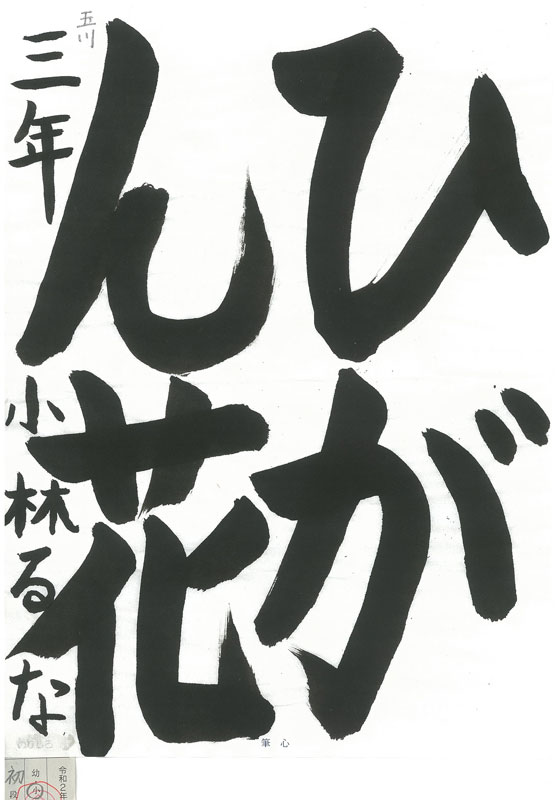 ひが
ん花
五川
三年 小林るな
心筆
令和2年
幼小
初段